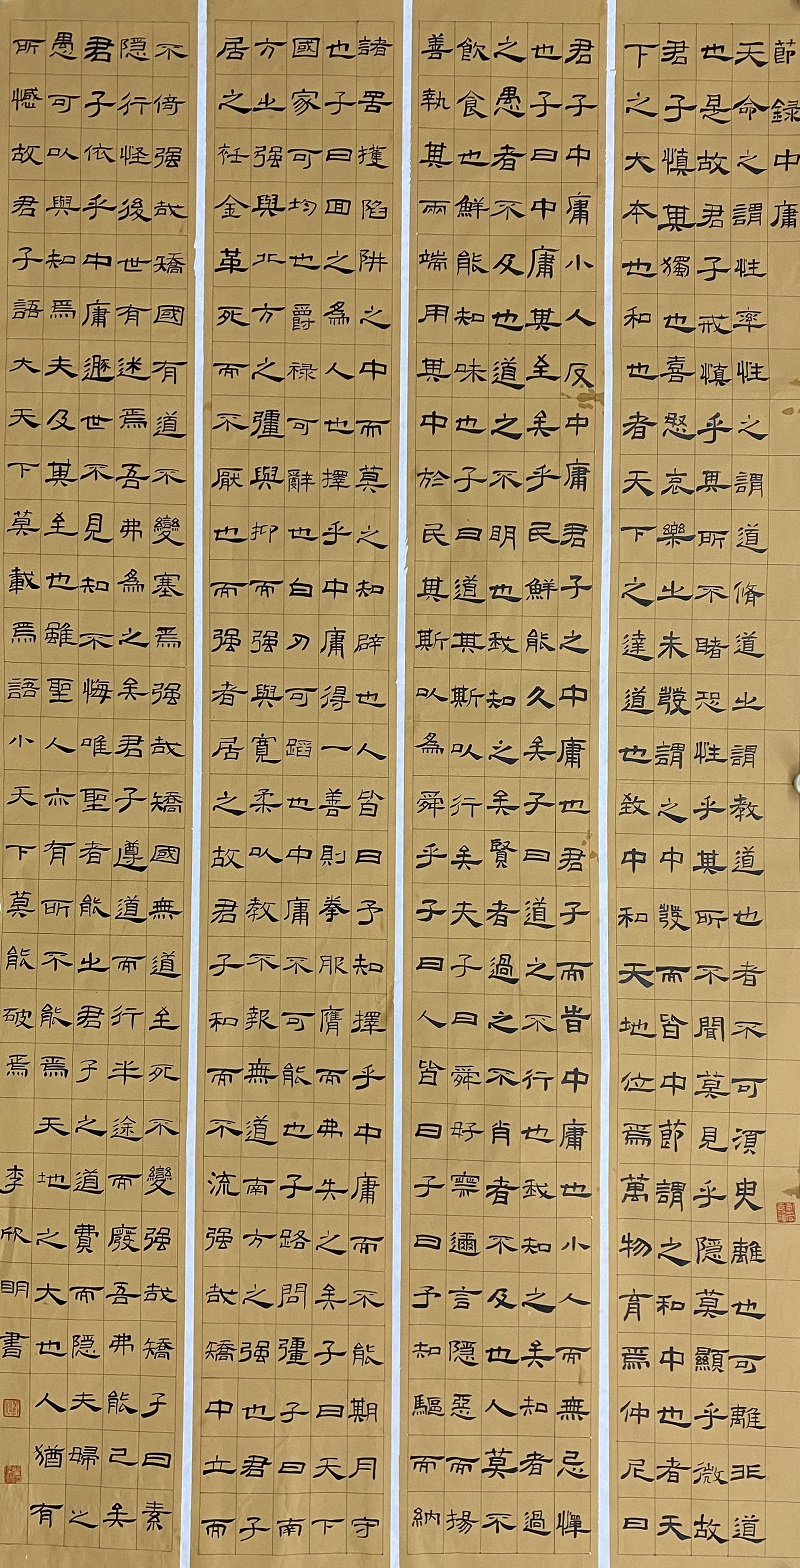 節録中庸
天命之謂性率性之謂道脩道之謂教道也者不可須臾離也可離非道
也是故君子戒慎乎其所不睹恐性乎其所不聞莫見乎隱莫顯乎微故
君子慎其獨也喜怒哀樂之未發謂之中發而皆中節謂之和中也者天
下之大本也和也者天下之達道也致中和天地位焉萬物育焉仲尼曰
君子中庸小人反中庸君子之中庸也君子而皆中庸也小人而無忌憚
也子曰中庸其至矣乎民鮮能久矣子曰道之不行也我知之矣知者過
之愚者不及也道之不明也我知之矣賢者過之不肖者不及也人莫不
飲食也鮮能知味也子曰道其斯以行矣夫子曰舜好察邇言隱惡而揚
善執其兩端用其中於民其斯以為舜乎子曰人皆曰子曰予知驅而納
諸罟擭陷阱之中而莫之知辟也人皆曰予知擇乎中庸而不能期月守
也子曰回之為人也擇乎中庸得一善則拳服膺而弗失之矣子曰天下
國家可均也爵祿可辭也白刃可蹈也中庸不可能也子路問彊子曰南
方之强與北方之彊與抑而强與寬柔以教不報無道南方之强也君子
居之衽金革死而不厭也而强者居之故君子和而不流强哉矯中立而
不倚强哉矯國有道不變塞焉强哉矯國無道至死不變强哉矯子曰素
隱行怪後世有述焉吾弗為之矣君子遵道而行半途而廢吾弗能已矣
君子依乎中庸遯世不見知不悔唯聖者能之君子之道費而隱夫婦之
愚可以與知焉夫及其至也雖聖人亦有所不能焉天地之大也人猶有
所憾故君子語大天下莫載焉語小天下莫能破焉 李欣明書